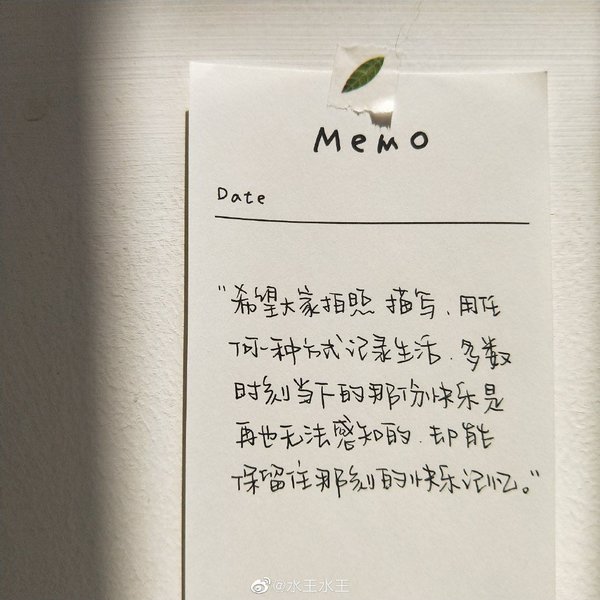 Memo
Date
“希望大家拍照 描写、用任
何一种方式记录生活、多数
时刻当下的那份快乐是
再也无法感知的、却能
保留住那刻的快乐记忆。”
@水王水王